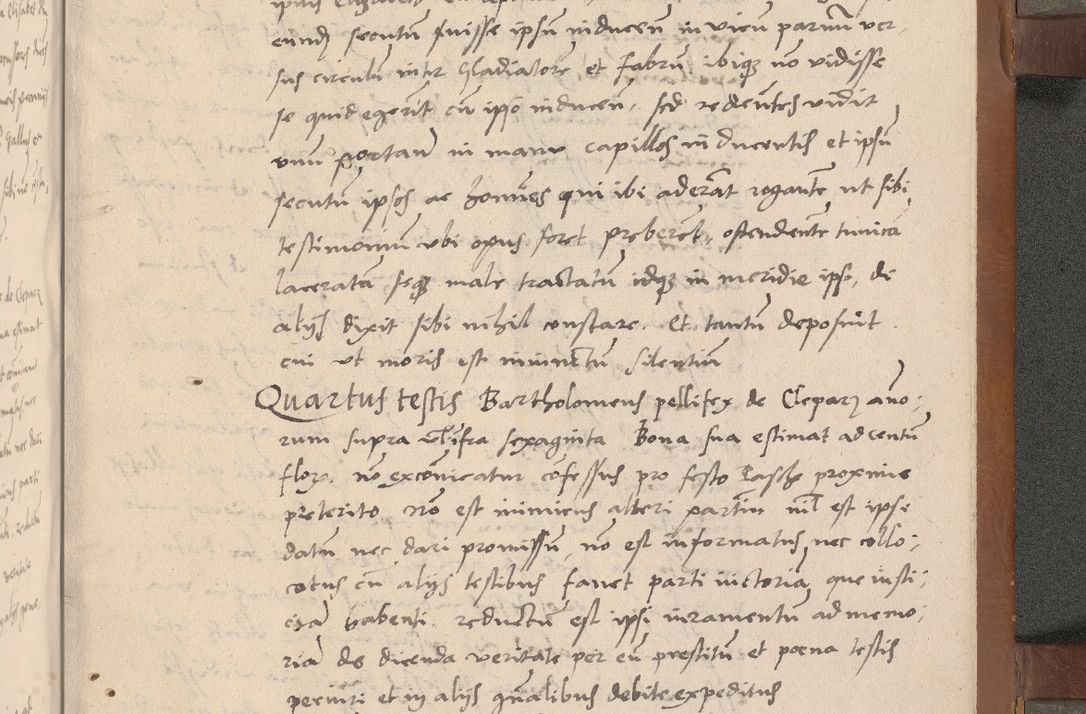 eundẽ secutũ fuisse ipsũ inducen̄ in vicũ parvũ ver
sus circulũ inter Gladiatorẽ et Fabrũ ibiqʒ nõ vidisse
se quid egerit cũ ipso inducen̄. sed redeuntes vidit
unũ portañ in manu capillos inducentis et ipsũ
secutũ ipsos ac hoĩnes qui ibi aderãt rogantẽ ut sibi
testimoniũ ubi opus foret preberet, ostendentẽ tunica
laceratã seqʒ male tractatũ idqʒ in meridie ipso, de
aliis dixit sibi nihil constare. Et tantũ deposuit
cui ut moris est iniunctũ silentium
Quartus testis Bartholomeus pellifex de Cleparz año:
rum supra vl̃ infra sexaginta Bona sua estimat ad centũ
flor. nõ excõnicatur cõfessus pro festo Pasche proxime
preterito nõ est inimicus alteri partiũ nil est ipse
datũ nec dari promissũ, nõ est informatus, nec collo:
cutus cũ aliis testibus favet parti victoria que iusti:
ciã habenti. reductũ est ipsi iuramentũ ad memo:
riã de dicenda veritate per eũ prestitũ et poena testis
periuri et in aliis gñalibus debite expeditus